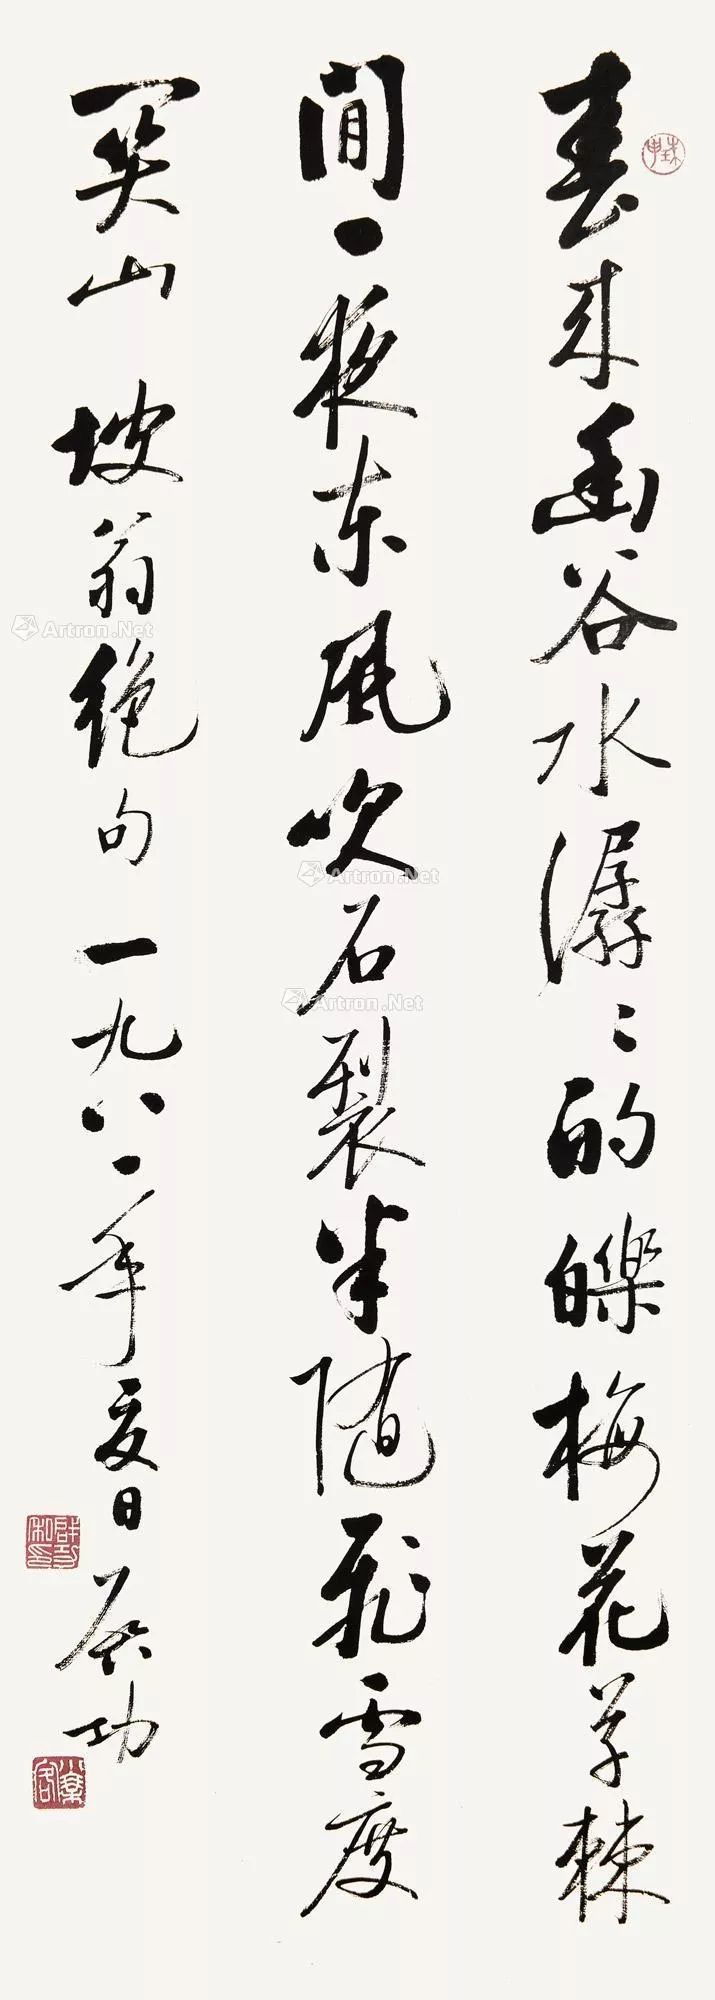 春来幽谷水潺〻的皪梅花草棘
间一夜东风吹石裂半随飞雪度
关山 坡翁绝句 一九八一年夏日 启功
Artron.Net
Artron.Net
Artron.Net